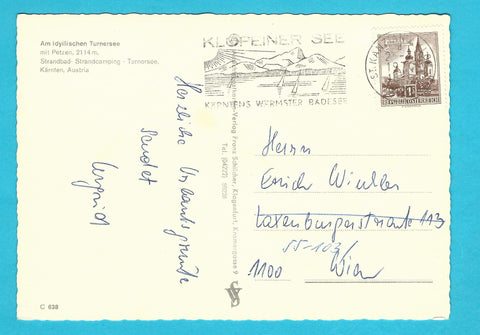 Am idyllischen Turnersee
mit Petzen, 2114 m.
Strandbad- Strandcamping - Turnersee,
Kärnten, Austria
KLOPEINER SEE
KÄRNTENS WÄRMSTER BADESEE
REPUBLIK ÖSTERREICH
Herzliche Urlaubsgrüße
sendet
Verlag Franz Schilcher, Klagenfurt,
Tel. (04222)
Herrn
Erich Winkler
Laxenburgerstraße 113
55-103/
1100 Wien
C 638